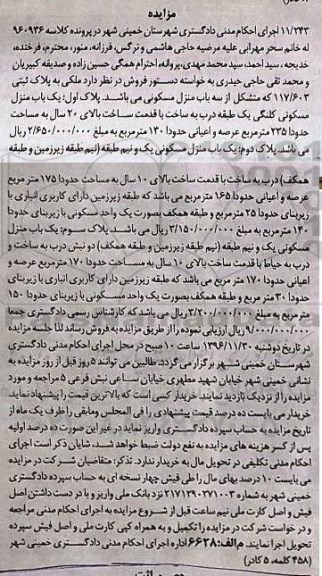 مزایده
۱۱/۲۴۳ اجرای احکام مدنی دادگستری شهرستان خمینی شهر در پرونده کلاسه ۹۶۰۹۳۶
له خانم سحر مهرابی علیه مرضیه حاجی هاشمی و نرگس، فرزانه، منور، محترم، فرخنده،
خدیجه، سید احمد، سید محمد مهدی، پروانه، احترام همگی حسین زاده و صدیقه کبیریان
و محمد تقی حاجی حیدری به خواسته دستور فروش در نظر دارد ملکی به پلاک ثبتی
۱۱۷/۶۰۳ که متشکل از سه باب منزل مسکونی می باشد. پلاک اول: یک باب منزل
مسکونی کلنگی یک طبقه درب به ساخت با قدمت ساخت بالای ۲۰ سال به مساحت
حدودا ۲۳۵ متر مربع عرصه و اعیانی حدودا ۱۳۰ متر مربع به مبلغ ۲/۶۵۰/۰۰۰/۰۰۰ ریال
می باشد. پلاک دوم: یک باب منزل مسکونی یک و نیم طبقه (نیم طبقه زیرزمین و طبقه
همکف) درب به ساخت با قدمت ساخت بالای ۱۰ سال به مساحت حدودا ۱۷۵ متر مربع
عرصه و اعیانی حدودا ۱۶۵ متر مربع می باشد که طبقه زیرزمین دارای کاربری انباری با
زیربنای حدودا ۲۵ متر مربع و طبقه همکف بصورت یک واحد مسکونی با زیربنای حدودا
۱۴۰ متر مربع به مبلغ ۳/۱۵۰/۰۰۰/۰۰۰ ریال می باشد. پلاک سوم: یک باب منزل
مسکونی یک و نیم طبقه (نیم طبقه زیرزمین و طبقه همکف) دو نبش درب به ساخت و
درب به حیاط با قدمت ساخت بالای ۱۰ سال به مساحت حدودا ۱۷۰ متر مربع عرصه و
اعیانی حدودا ۱۷۰ متر مربع می باشد که طبقه زیرزمین دارای کاربری انباری با زیربنای
حدودا ۳۰ متر مربع و طبقه همکف بصورت یک واحد مسکونی با زیربنای حدودا ۱۵۰
متر مربع به مبلغ ۳/۲۰۰/۰۰۰/۰۰۰ ریال می باشد که کارشناس رسمی دادگستری جمعا
۹/۰۰۰/۰۰۰/۰۰۰ ریال ارزیابی نموده را از طریق مزایده به فروش رساند لذا جلسه مزایده
در تاریخ دوشنبه ۱۳۹۶/۱۱/۳۰ ساعت ۱۰ صبح در محل اجرای احکام مدنی دادگستری
شهرستان خمینی شهر برگزار می گردد. طالبین می توانند ۵ روز قبل از روز مزایده به
نشانی خمینی شهر خیابان شهید مطهری خیابان ساعی نبش فرعی ۵ مراجعه و مورد
مزایده را از نزدیک بازدید نمایند. خریدار کسی است که بالاترین قیمت را پیشنهاد نماید
خریدار می بایست ده درصد قیمت پیشنهادی را فی المجلس و مابقی را ظرف یک ماه از
تاریخ مزایده به حساب سپرده دادگستری واریز نماید در غیر این صورت ده درصد اولیه
پس از کسر هزینه های مزایده به نفع دولت ضبط خواهد شد. شایان ذکر است اجرای
احکام مدنی تکلیفی در تحویل مال به خریدار ندارد. تذکر: متقاضیان شرکت در مزایده
می بایست ۱۰ درصد بهای مال را طی فیش چهار نسخه ای به حساب سپرده دادگستری
خمینی شهر به شماره ۲۱۷۱۲۹۰۲۷۱۰۰۳ نزد بانک ملی واریز و با در دست داشتن اصل
فیش و اصل کارت ملی نیم ساعت قبل از شروع مزایده به اجرای احکام مدنی مراجعه
و درخواست شرکت در مزایده را تکمیل و به همراه کپی کارت ملی و اصل فیش سپرده
تحویل اجرا نمایند. م الف: ۶۶۲۸ اداره اجرای احکام مدنی دادگستری خمینی شهر
(۴۵۸ کلمه، ۵ کادر)